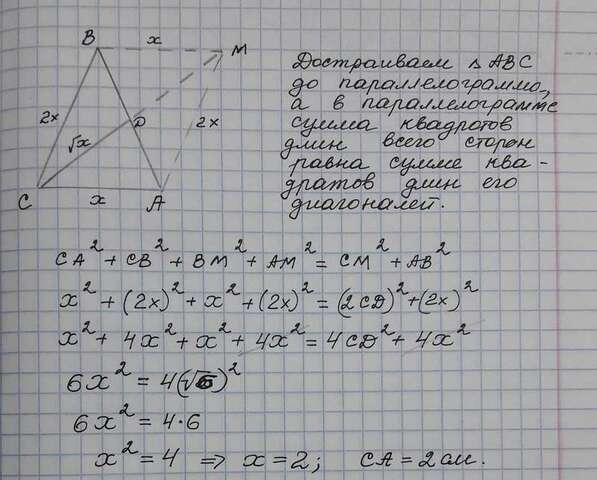 B x M
Достраиваем △ ABC
до параллелограмма,
а в параллелограмме
2x D 2x
сумма квадратов
√x
длин всего сторон
равна сумме ква-
дратов длин его
C x A
диагоналей.
CA² + CB² + BM² + AM² = CM² + AB²
x² + (2x)² + x² + (2x)² = (2CD)² + (2x)²
x² + 4x² + x² + 4x² = 4CD² + 4x²
6x² = 4(√6)²
6x² = 4·6
x² = 4 ⇒ x = 2; CA = 2см.